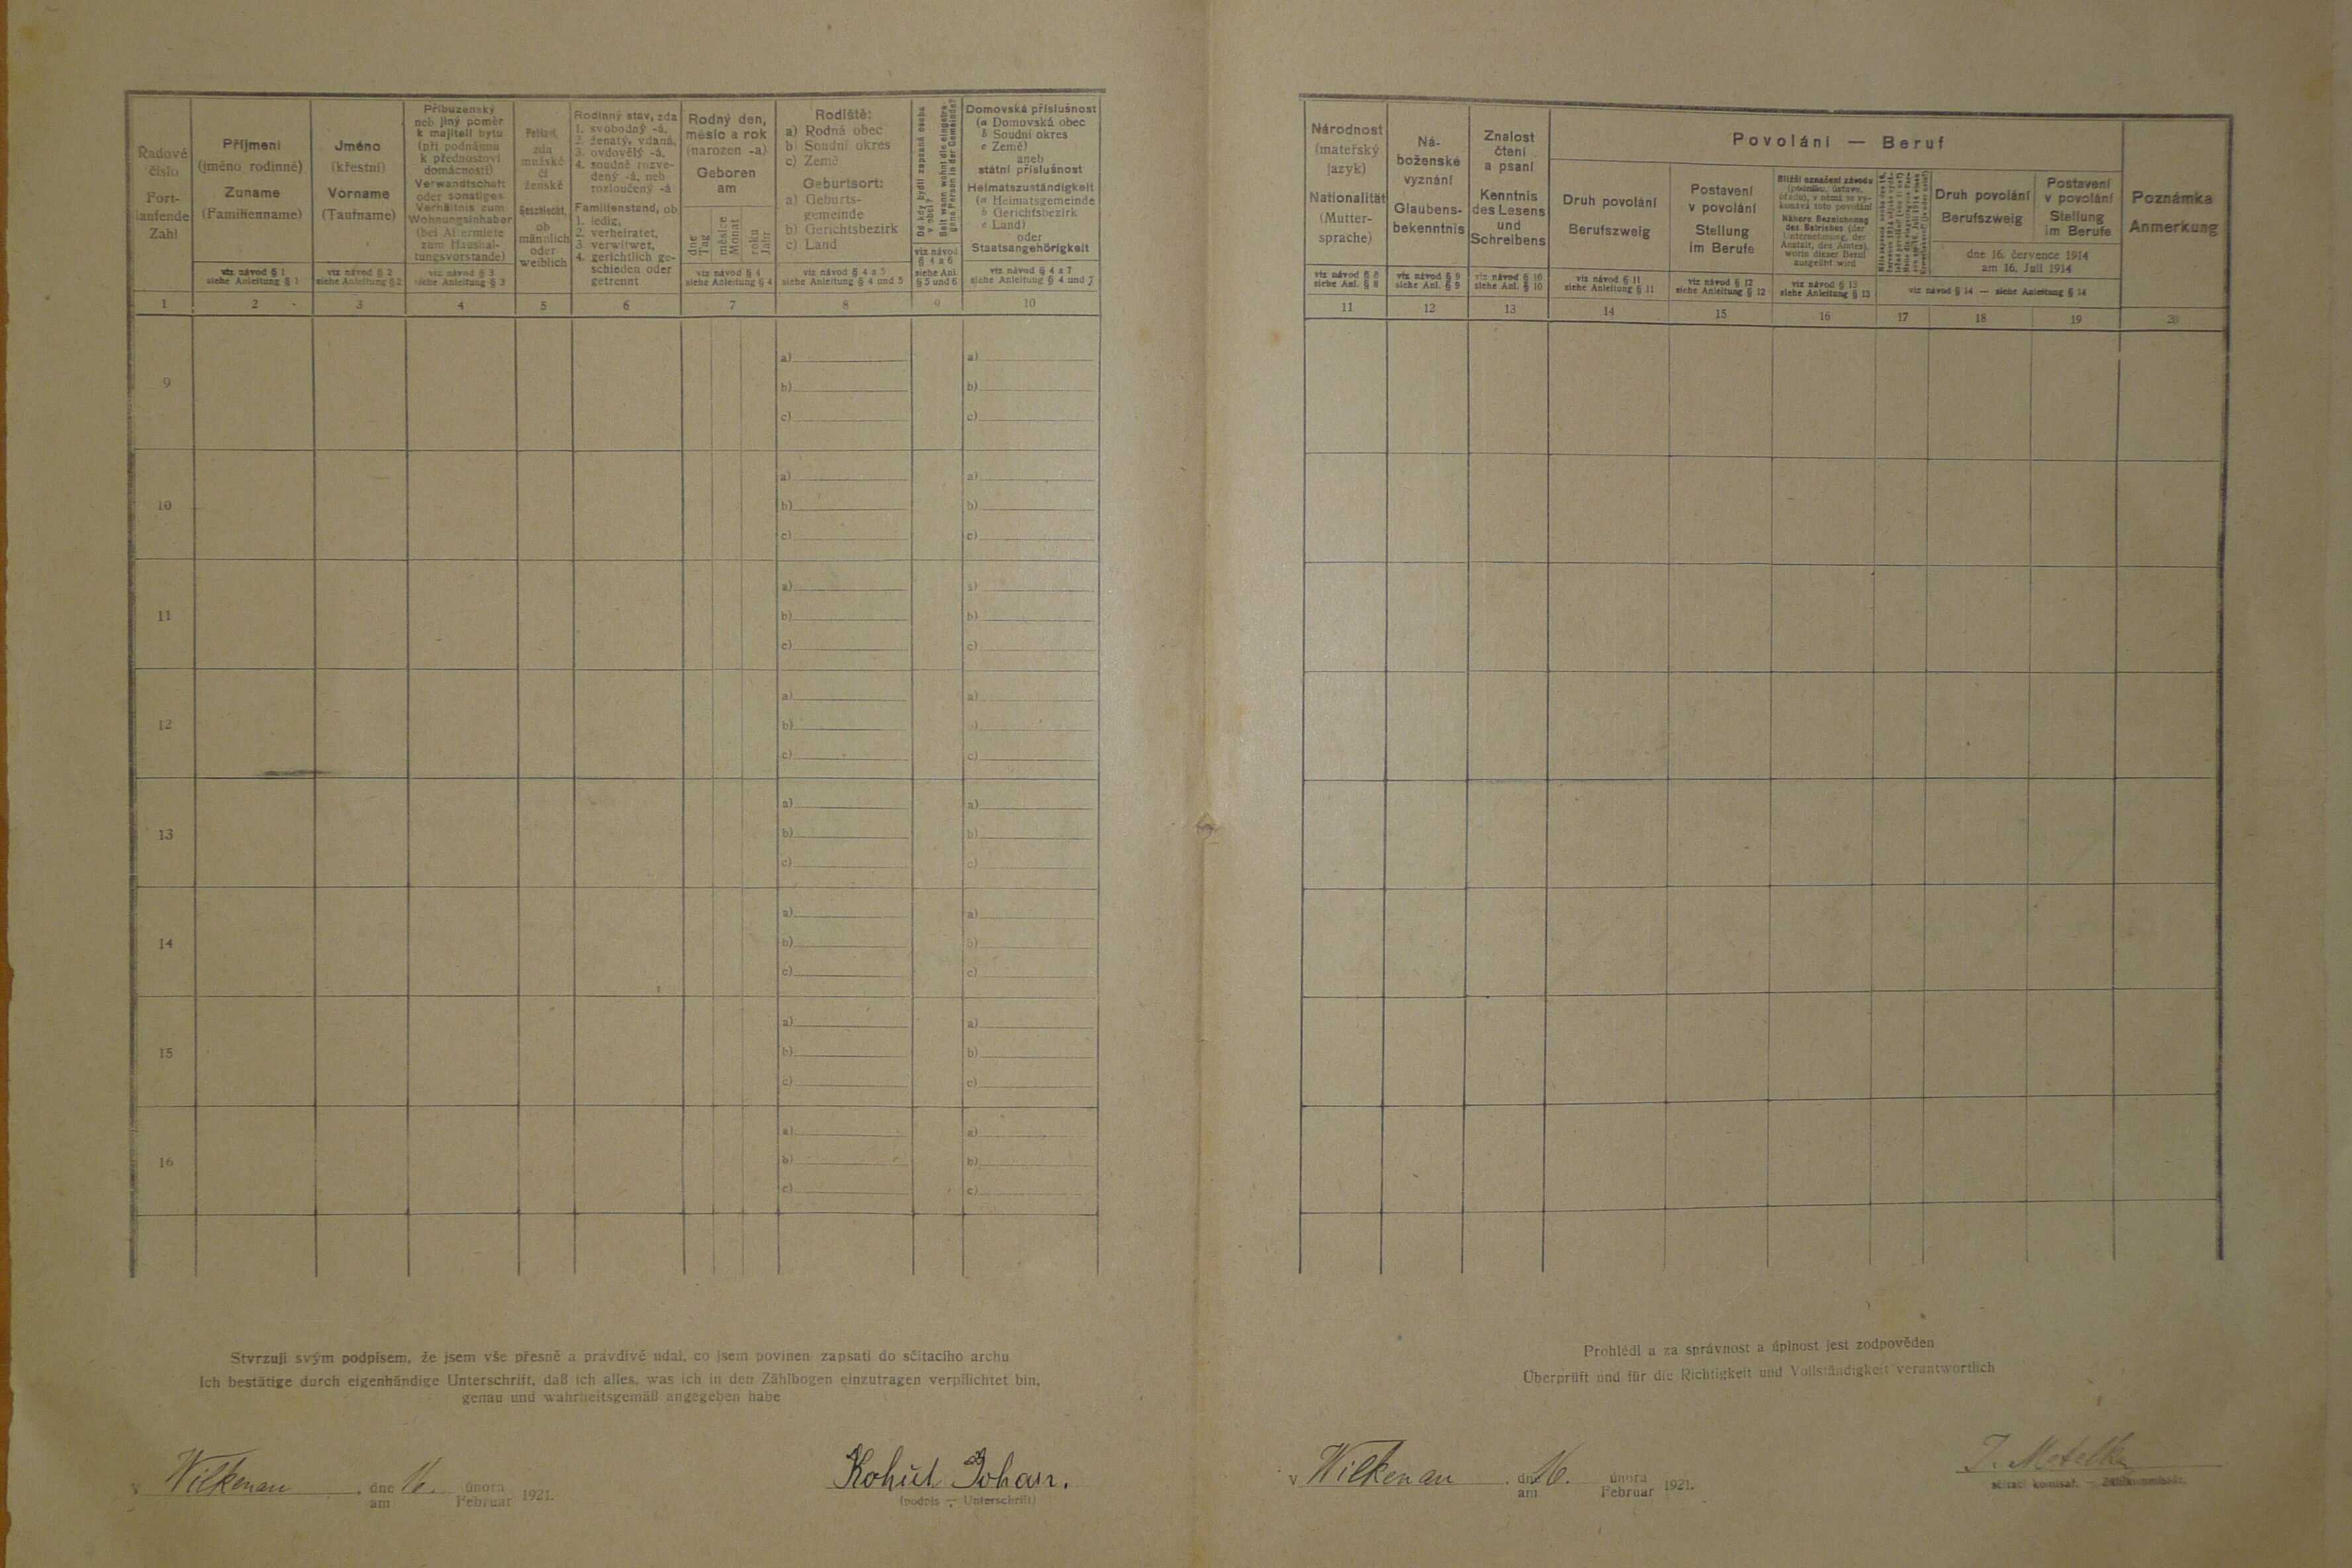 Řadové
číslo
Fort-
laufende
Zahl
Příjmení
(jméno rodinné)
Zuname
(Familienname)
viz návod § 1
siehe Anleitung § 1
Jméno
(křestní)
Vorname
(Taufname)
viz návod § 2
siehe Anleitung § 2
Příbuzenský
neb jiný poměr
k majiteli bytu
(při podnájmu
k přednostovi
domácnosti)
Verwandtschaft
oder sonstiges
Verhältnis zum
Wohnungsinhaber
(bei Aftermiete
zum Haushal-
tungsvorstande)
viz návod § 3
siehe Anleitung § 3
Pohlaví,
zda
mužské
či
ženské
Geschlecht,
ob
männlich
oder
weiblich
Rodinný stav, zda
1. svobodný -á,
2. ženatý, vdaná,
3. ovdovělý -á,
4. soudně rozve-
dený -á, neb
rozloučený -á
Familienstand, ob
1. ledig,
2. verheiratet,
3. verwitwet,
4. gerichtlich ge-
schieden oder
getrennt
Rodný den,
měsíc a rok
(narozen -a)
Geboren
am
dne
Tag
měsíce
Monat
roku
Jahr
viz návod § 4
siehe Anleitung § 4
Rodiště:
a) Rodná obec
b) Soudní okres
c) Země
Geburtsort:
a) Geburts-
gemeinde
b) Gerichtsbezirk
c) Land
viz návod § 4 a 5
siehe Anleitung § 4 und 5
Od kdy bydlí zapsaná osoba
v obci?
Seit wann wohnt die eingetra-
gene Person in der Gemeinde?
viz návod
§ 4 a 6
siehe Anl.
§ 5 und 6
Domovská příslušnost
(a Domovská obec
b Soudní okres
c Země)
aneb
státní příslušnost
Heimatszuständigkeit
(a Heimatsgemeinde
b Gerichtsbezirk
c Land)
oder
Staatsangehörigkeit
viz návod § 4 a 7
siehe Anleitung § 4 und 7
1 2 3 4 5 6 7 8 9 10
9
a) a)
b) b)
c) c)
10
a) a)
b) b)
c) c)
11
a) a)
b) b)
c) c)
12
a) a)
b) b)
c) c)
13
a) a)
b) b)
c) c)
14
a) a)
b) b)
c) c)
15
a) a)
b) b)
c) c)
16
a) a)
b) b)
c) c)
Stvrzuji svým podpisem, že jsem vše přesně a pravdivě udal, co jsem povinen zapsati do sčítacího archu
Ich bestätige durch eigenhändige Unterschrift, daß ich alles, was ich in den Zählbogen einzutragen verpflichtet bin,
genau und wahrheitsgemäß angegeben habe
v Wilkenau dne 16. února 1921.
am Februar
Kohút Johan.
(podpis — Unterschrift)
Národnost
(mateřský
jazyk)
Nationalität
(Mutter-
sprache)
viz návod § 8
siehe Anl. § 8
Ná-
boženské
vyznání
Glaubens-
bekenntnis
viz návod § 9
siehe Anl. § 9
Znalost
čtení
a psaní
Kenntnis
des Lesens
und
Schreibens
viz návod § 10
siehe Anl. § 10
Povolání — Beruf
Druh povolání
Berufszweig
viz návod § 11
siehe Anleitung § 11
Postavení
v povolání
Stellung
im Berufe
viz návod § 12
siehe Anleitung § 12
Bližší označení závodu
(podniku, ústavu,
úřadu), v němž se vy-
konává toto povolání
Nähere Bezeichnung
des Betriebes (der
Unternehmung, der
Anstalt, des Amtes),
worin dieser Beruf
ausgeübt wird
viz návod § 13
siehe Anleitung § 13
Druh povolání
Berufszweig
Postavení
v povolání
Stellung
im Berufe
dne 16. července 1914
am 16. Juli 1914
viz návod § 14 — siehe Anleitung § 14
Poznámka
Anmerkung
11 12 13 14 15 16 17 18 19 20
Prohlédl a za správnost a úplnost jest zodpověden
Überprüft und für die Richtigkeit und Vollständigkeit verantwortlich
v Wilkenau dne 16. února 1921.
am Februar
J. Metelka
sčítací komisař. — Zählkommissär.